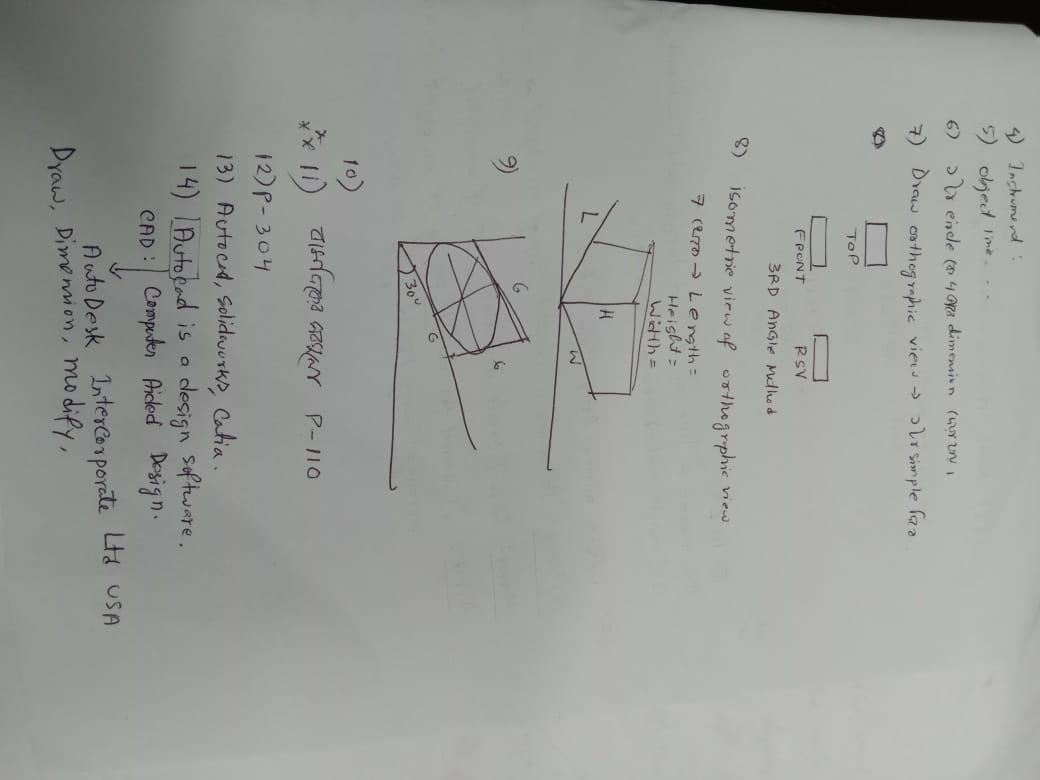 4) Instrument :
5) object line . . . .
6) circle dimension
7) Draw orthographic view → simple
TOP
FRONT RSV
3RD Angle Method
8) isometric view of orthographic view
7 → Length =
Height =
Width =
L H W
9)
G
G G
30°
10)
11) P-110
12) P-304
13) Autocad, solidworks, Catia.
14) Autocad is a design software.
CAD : Computer Aided Design.
AutoDesk InterCorporate Ltd USA
Draw, Dimension, modify,